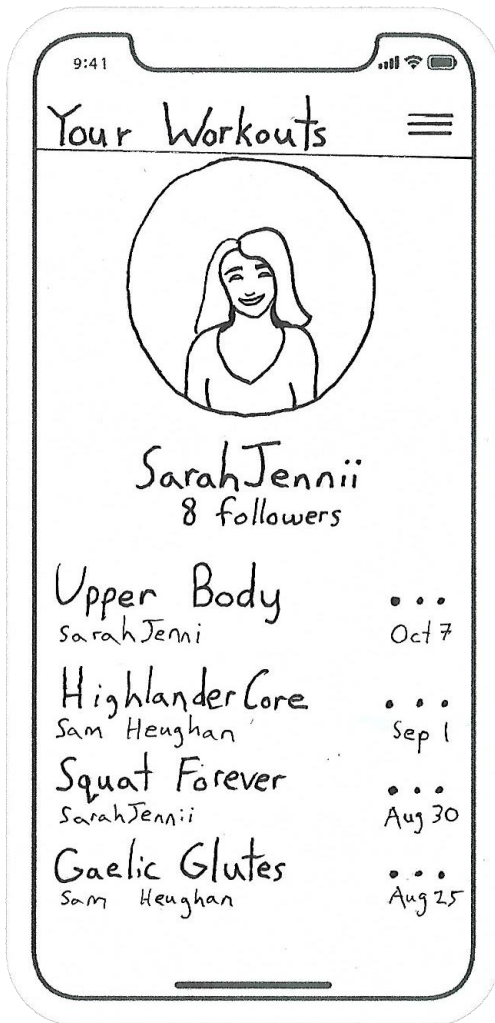 9:41
Your Workouts
SarahJennii
8 followers
Upper Body
SarahJenni
Oct 7
HighlanderCore
Sam Heughan
Sep 1
Squat Forever
SarahJennii
Aug 30
Gaelic Glutes
Sam Heughan
Aug 25